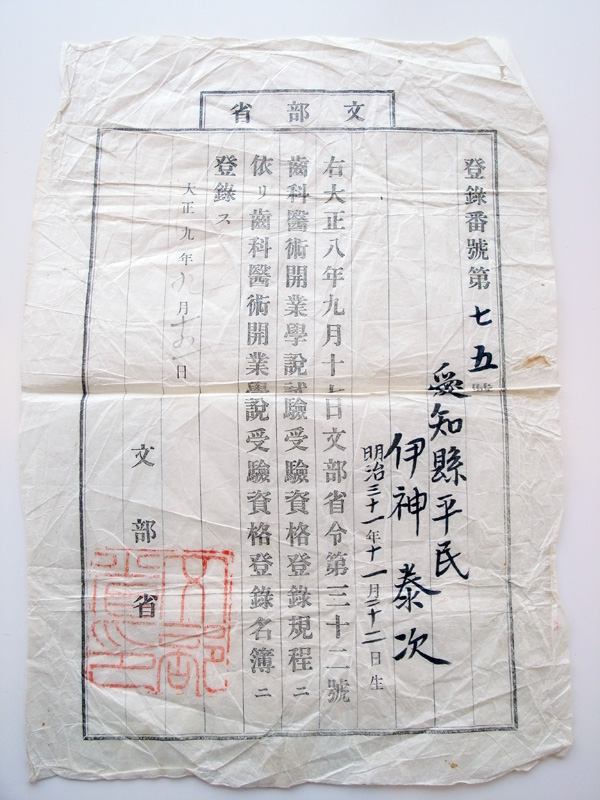 文部省
登錄番號第七五號
愛知縣平民
伊神泰次
明治三十一年十一月二十二日生
右大正八年九月十七日文部省令第三十二號
齒科醫術開業學說試驗受驗資格登錄規程ニ
依リ齒科醫術開業學說受驗資格登錄名簿ニ
登錄ス
大正九年八月十一日
文部省
文部省印